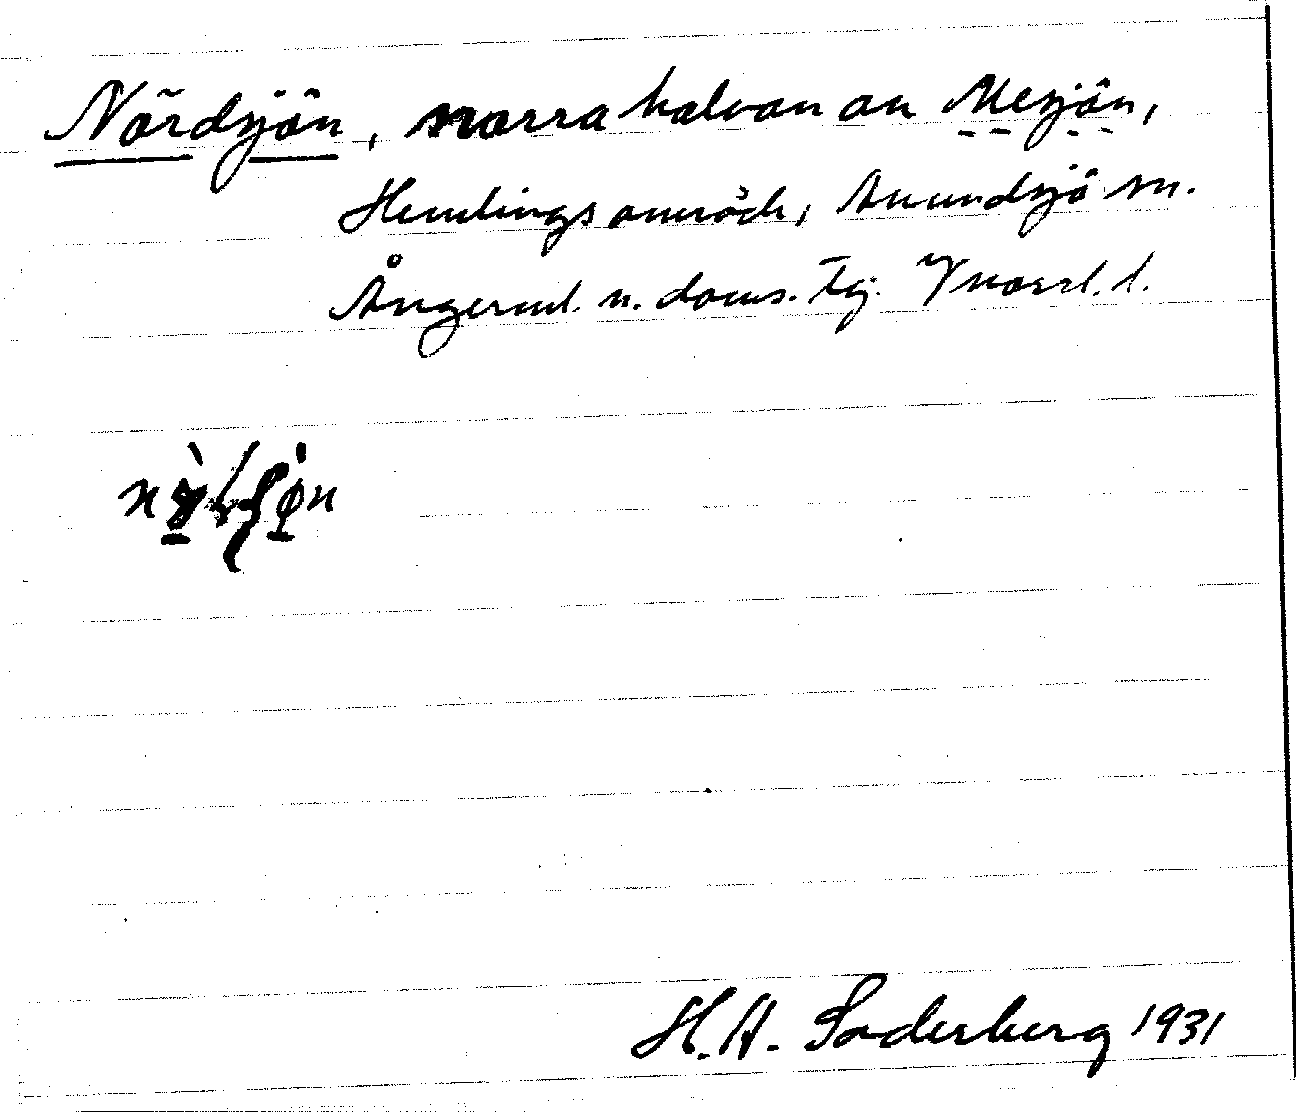 Nördsjön, norra halvan av Mesjön,
Hemlings område, Anundsjö sn.
Ångerml. n. doms. tg. Vnorrl. l.
H. A. Söderberg 1931